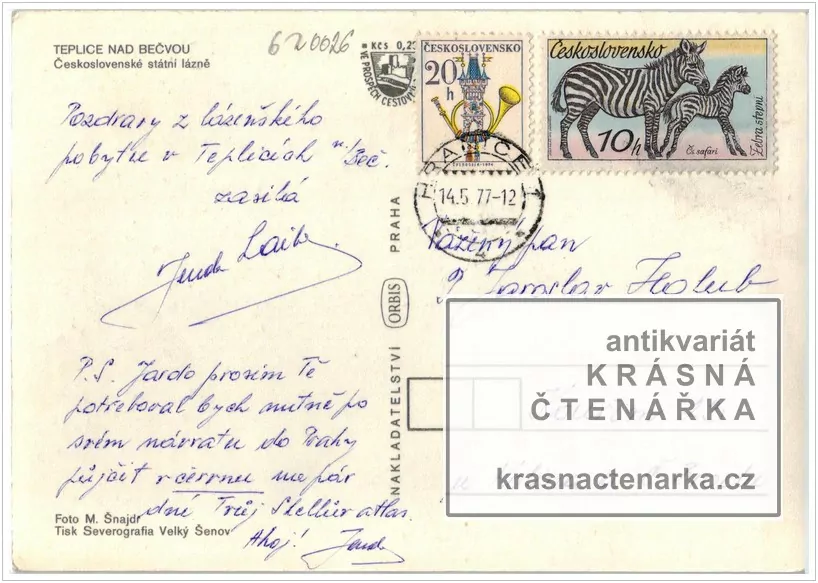 TEPLICE NAD BEČVOU
Československé státní lázně
620026
Kčs 0,25
VE PROSPĚCH CESTOVN
ČESKOSLOVENSKO
20 h
Československo
10h
Čs. safari
Zebra stepní
HRANICE 1
14.5.77-12
Pozdravy z lázeňského
pobytu v Teplicích n/Beč.
zasílá
Jenda
P.S. Jardo prosím Tě
potřeboval bych nutně po
svém návratu do Prahy
půjčit v červnu na pár
dní Tvůj atlas.
Ahoj! Jenda
Foto M. Šnajdr
Tisk Severografia Velký Šenov
NAKLADATELSTVÍ ORBIS PRAHA
Vážený pan
Jaroslav Holub
antikvariát
KRÁSNÁ
ČTENÁŘKA
krasnactenarka.cz